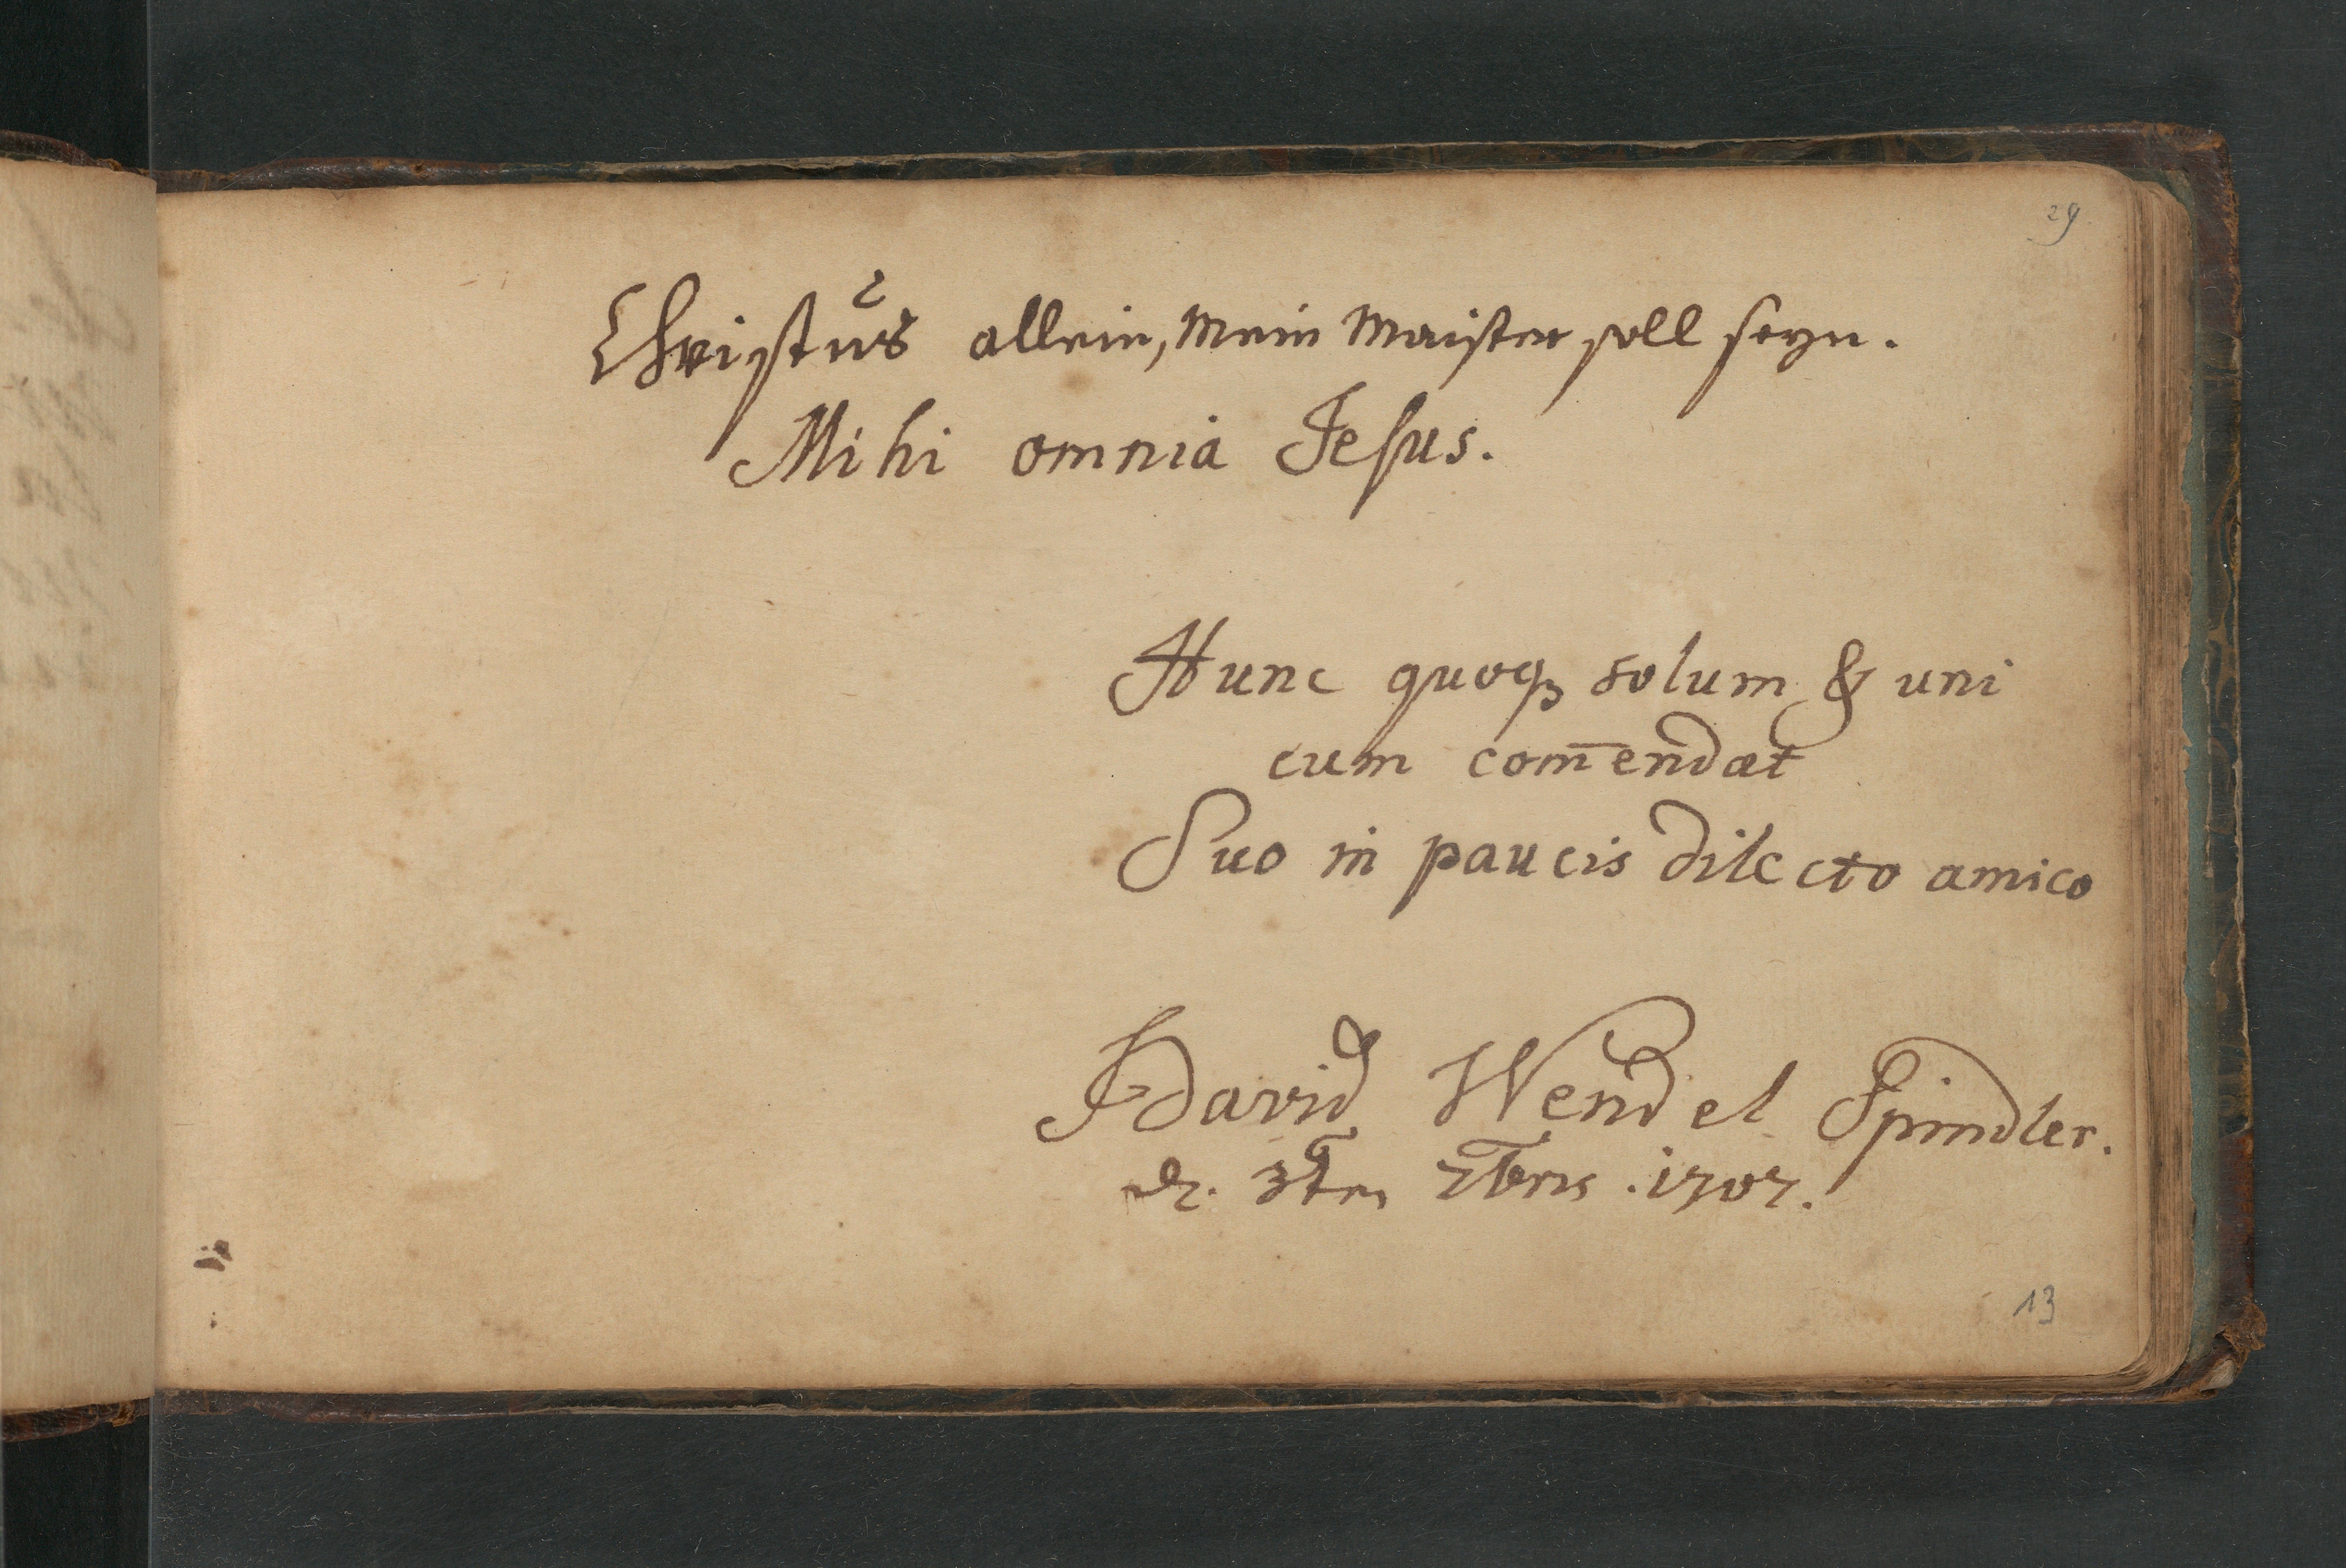 29
Christus allein, Mein Maister soll seyn.
Mihi omnia Jesus.
Hunc quoqꝫ solum & uni
cum com̄endat
Suo in paucis dilecto amico
David Wendel Spindler.
d. 3ten 7bris. 1707.
13